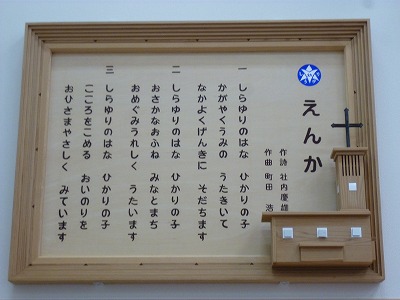 えんか
作詩 社内慶雄
作曲 町田 浩
一 しらゆりのはな ひかりの子
かがやくうみの うたきいて
なかよくげんきに そだちます
二 しらゆりのはな ひかりの子
おさかなおふね みなとまち
おめぐみうれしく うたいます
三 しらゆりのはな ひかりの子
こころをこめる おいのりを
おひさまやさしく みています